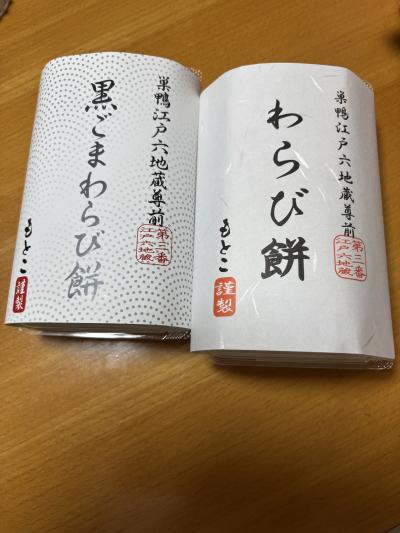 巣鴨江戸六地蔵尊前
黒ごまわらび餅
第三番
江戸六地蔵
もとこ
謹製
巣鴨江戸六地蔵尊前
わらび餅
第三番
江戸六地蔵
もとこ
謹製